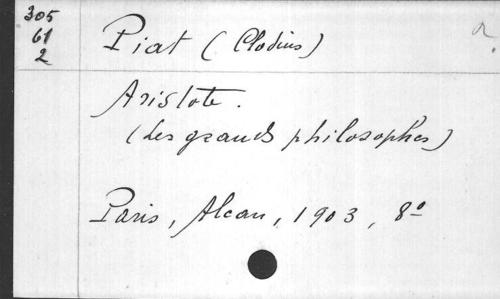 305
61
2
Piat (Clodius)
a.
Aristote.
(Les grands philosophes)
Paris, Alcan, 1903, 8º